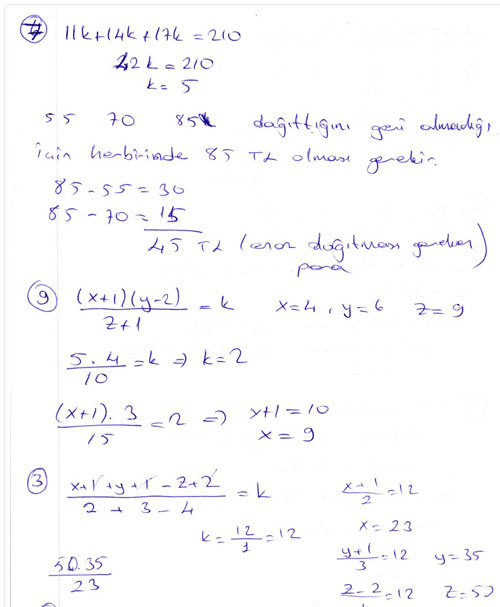 11k+14k+17k = 210
42k = 210
k = 5
55 70 85 dağıttığını geri almadığı
için herbirinde 85 TL olması gerekir.
85 - 55 = 30
85 - 70 = 15
45 TL (dağıtması gereken
para)
9 (x+1)(y-2) / z+1 = k x=4, y=6 z=9
5.4 / 10 = k ⇒ k=2
(x+1).3 / 15 = 2 ⇒ x+1=10
x=9
3 x+1+y+1-z+2 / 2+3-4 = k x+1 / 2 = 12
k = 12/1 = 12 x=23
50.35 / 23 y+1 / 3 = 12 y=35
z-2 / = 12 z=50